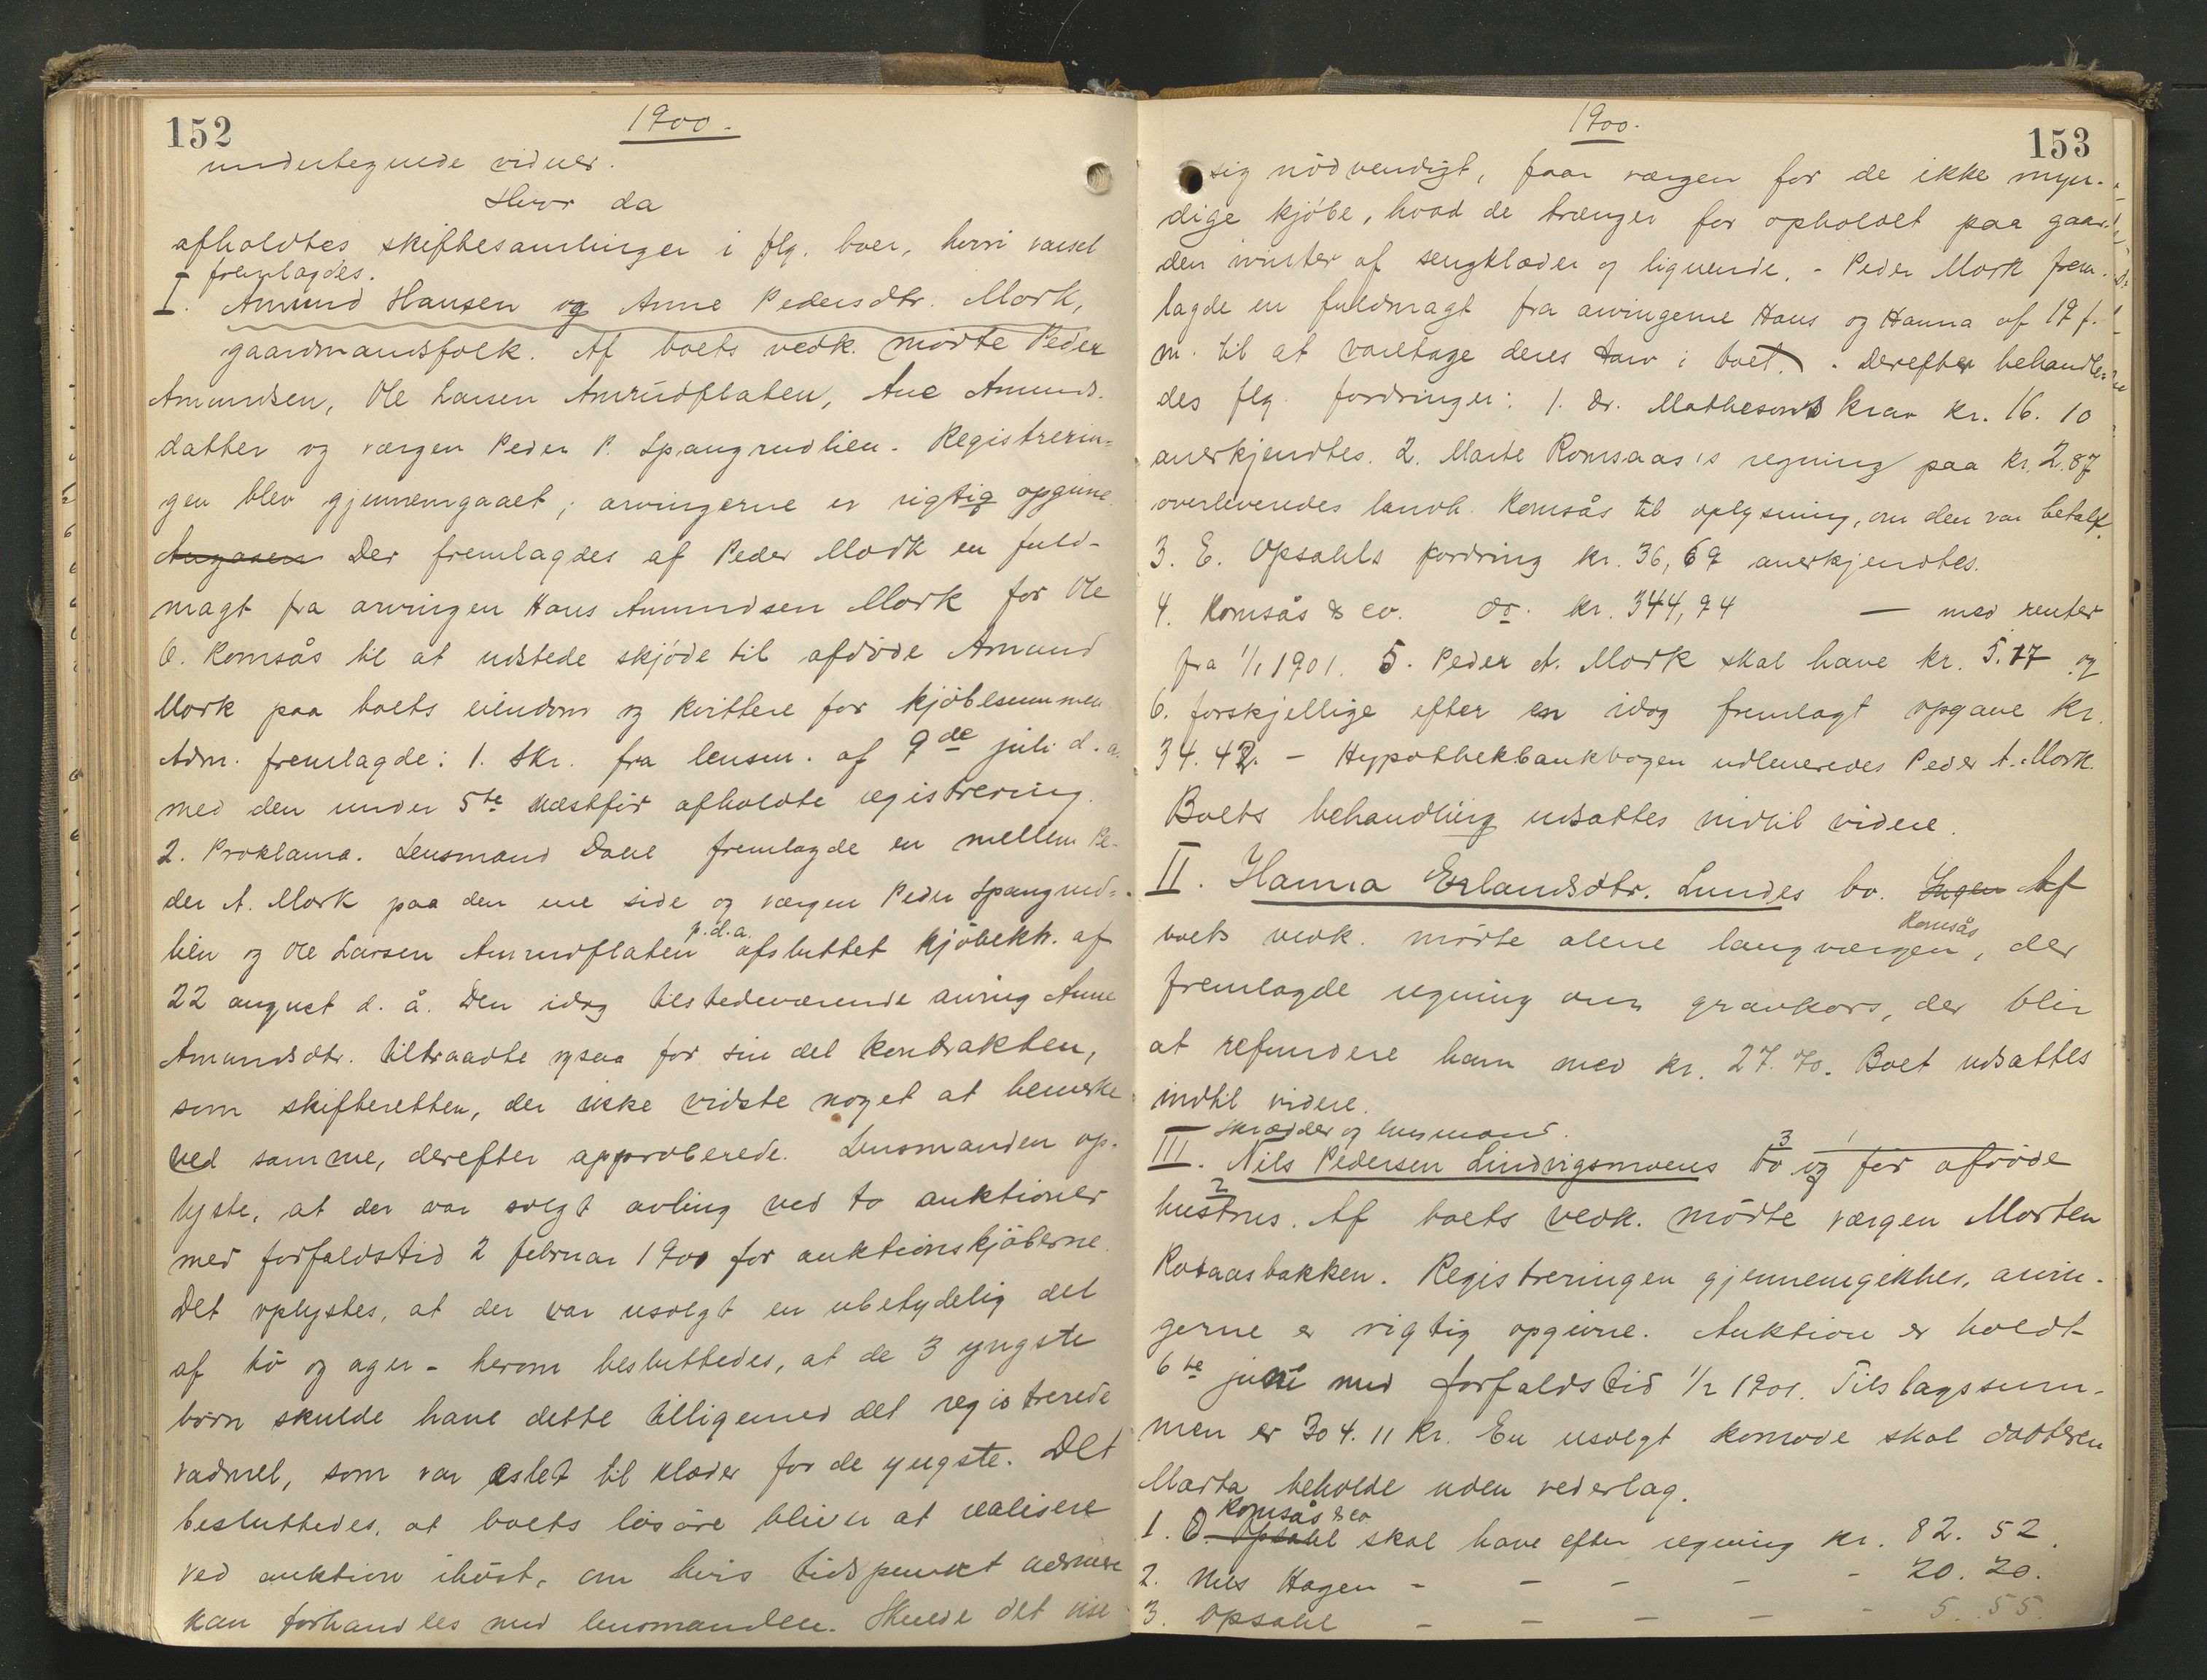 152
1900.
undertegnede vidner.
Hvor da
afholdtes skiftesamlinger i flg. boer, hvori varsel
fremlagdes.
I. Amund Hansen og Anne Pedersdtr. Mork,
gaardmandsfolk. Af boets vedk. mødte Peder
Amundsen, Ole Larsen Amrudflaten, Ane Amunds-
datter og værgen Peder P. Spangrudlien. Registrerin-
gen blev gjennemgaaet; arvingerne er rigtig opgivne.
Der fremlagdes af Peder Mork en fuld-
magt fra arvingen Hans Amundsen Mork for Ole
O. Romsås til at udstede skjøde til afdøde Amund
Mork paa boets eiendom og kvittere for kjøbesummen.
Adm. fremlagde: 1. Skr. fra lensm. af 9de juli d. a.
med den under 5te næstfør afholdte registrering.
2. Proklama. Lensmand Dahl fremlagde en mellem Pe-
der A. Mork paa den ene side og værgen Peder Spangrud-
lien og Ole Larsen Amrudflaten p.d.a. afsluttet kjøbekh. af
22 august d. å. Den idag tilstedeværende arving Anne
Amundsdtr. tiltraadte ogsaa for sin del kontrakten,
som skifteretten, der ikke vidste noget at bemerke
ved samme, derefter approberede. Lensmanden op-
lyste, at der var solgt avling ved to auktioner
med forfaldstid 2 februar 1900 for auktionskjøberne.
Det oplystes, at der var usolgt en ubetydelig del
af hø og ager - herom besluttedes, at de 3 yngste
børn skulde have dette tilligemed det registrerede
vadmel, som var eslet til klæder for de yngste. Det
besluttedes, at boets løsøre bliver at realisere
ved auktion ihøst, om hvis tidspunkt nærmere
kan forhandles med lensmanden. Skulde det vise
153
1900.
sig nødvendigt, faar værgen for de ikke myn-
dige kjøbe, hvad de trænger for opholdet paa gaar-
den ivinter af sengklæder og lignende. - Peder Mork frem-
lagde en fuldmagt fra arvingerne Hans og Hanna af 19 f.
m. til at varetage deres tarv i boet. - Derefter behandle-
des flg. fordringer: 1. Dr. Mathesons krav kr. 16. 10
anerkjendtes. 2. Marte Romsaas's regning paa kr. 2.87
overleveredes landh. Romsås til oplysning, om den var betalt.
3. E. Opsahls fordring kr. 36,69 anerkjendtes.
4. Romsås & co. do. kr. 344,94 — med renter
fra 1/1 1901. 5. Peder A. Mork skal have kr. 5.17 og
6. forskjellige efter en idag fremlagt opgave kr.
34.42. - Hypothekbankbogen udleveredes Peder A. Mork.
Boets behandling udsattes indtil videre.
II. Hanna Erlandsdtr. Lundes bo. Ingen Af
boets vedk. mødte alene laugværgen Romsås, der
fremlagde regning over gravkors, der blir
at refundere ham med kr. 27.70. Boet udsattes
indtil videre.
skrædder og husmand.
III. Nils Pedersen Lindvigsmoens bo og før afdøde
hustrus. Af boets vedk. mødte værgen Morten
Rosaasbakken. Registreringen gjennemgikkes, arvin-
gerne er rigtig opgivne. Auktion er holdt
6te juni med forfaldstid 1/2 1901. Tilslagssum-
men er 304.11 kr. En usolgt komode skal datteren
Marta beholde uden vederlag.
Romsås & co
1. O. Opsahl skal have efter regning kr. 82. 52.
2. Nils Hagen - - - - - 20. 20.
3. Opsahl - - - - - 5. 55.